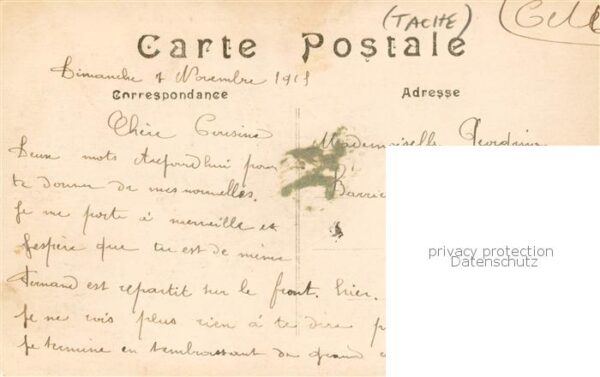 (TACHE)
Carte Postale
Dimanche 7 Novembre 1915
Correspondance
Adresse
Chère Cousine
Mademoiselle
Deux mots Aujourdhui pour
te donner de mes nouvelles.
Je me porte à merveille et
J'espère que tu est de même
Fernand est repartit sur le front. hier.
Je ne vois plus rien à te dire
Je termine en t'embrassant de grand
privacy protection
Datenschutz